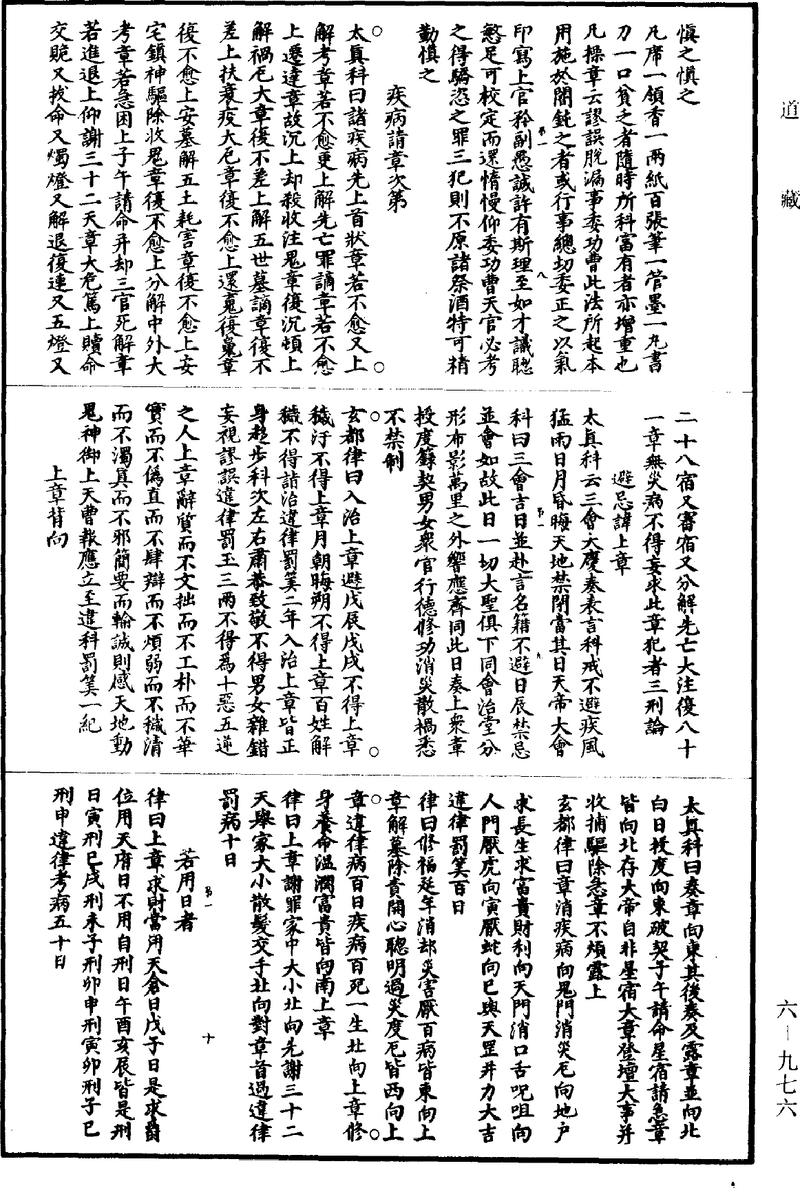 道藏
慎之慎之
凡席一領香一兩紙百張筆一管墨一丸書
刀一口貧之者隨時所科富有者亦增重也
凡操章云謬誤脫漏事委功曹此法所起本
用施於闇鈍之者或行事總切委正之以氣
印寫上官矜副愚誠許有斯理至如才識聰
慜足可校定而還惰慢仰委功曹天官必考
之得驕恣之罪三犯則不原諸祭酒特可精
勤慎之
疾病請章次第
太真科曰諸疾病先上首狀章若不愈又上
解考章若不愈更上解先亡罪謫章若不愈
上遷達章故沉上却殺收注鬼章復沉頓上
解禍厄大章復不差上解五世墓謫章復不
差上扶衰疫大厄章復不愈上還魂復魄章
復不愈上安墓解五土耗害章復不愈上安
宅鎮神驅除收鬼章復不愈上分解中外大
考章若急困上子午請命并却三官死解章
若進退上仰謝三十二天章大危篤上贖命
交賧又拔命又燭燈又解退復連又五燈又
二十八宿又審宿又分解先亡大注復八十
一章無災病不得妄求此章犯者三刑論
避忌諱上章
太真科云三會大慶奏表言科戒不避疾風
猛雨日月昏晦天地禁閉當其日天帝大會
科曰三會吉日並赴言名籍不避日辰禁忌
並會如故此日一切大聖俱下同會治堂分
形布影萬里之外響應齊同此日奏上眾章
授度籙契男女眾官行德修功消災散禍悉
不禁制
玄都律曰入治上章避戊辰戊戌不得上章
穢汙不得上章月朝晦朔不得上章百姓解
穢不得詣治違律罰筭二年入治上章皆正
身趍步科次左右肅恭致敬不得男女雜錯
妄視謬誤違律罰玉三兩不得為十惡五逆
之人上章辭質而不文拙而不工朴而不華
實而不偽直而不肆辯而不煩弱而不穢清
而不濁真而不邪簡要而輸誠則感天地動
鬼神御上天曹報應立至違科罰筭一紀
上章背向
太真科曰奏章向東其後奏及露章並向北
白日授度向東破契子午請命星宿請急章
皆向北存大帝自非星宿大章登壇大事并
收捕驅除急章不煩露上
玄都律曰章消疾病向鬼門消災厄向地戶
求長生求富貴財利向天門消口舌呪咀向
人門厭虎向寅厭蛇向巳與天罡并力大吉
違律罰筭百日
律曰修福延年消却災害厭百病皆東向上
章解墓除責開心聰明過災度厄皆西向上
章違律病百日疾病百死一生北向上章修
身養命溫潤富貴皆向南上章
律曰上章謝罪家中大小北向先謝三十二
天舉家大小散髮交手北向對章首過違律
罰病十日
若用日者
律曰上章求財當用天倉日戊子日是求爵
位用天府日不用自刑日午酉亥辰皆是刑
日寅刑巳戌刑未子刑卯申刑寅卯刑子巳
刑申違律考病五十日
六－九七六